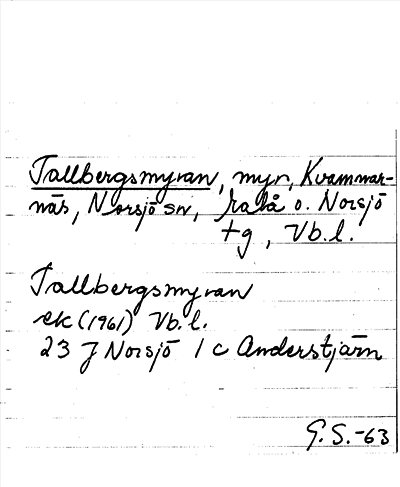 Tallbergsmyran, myr, Kvammar-
näs, Norsjö sn, o. Norsjö
tg, Vb.l.
Tallbergsmyran
ek (1961) Vb.l.
23 J Norsjö 1 c Anderstjärn
G.S.-63